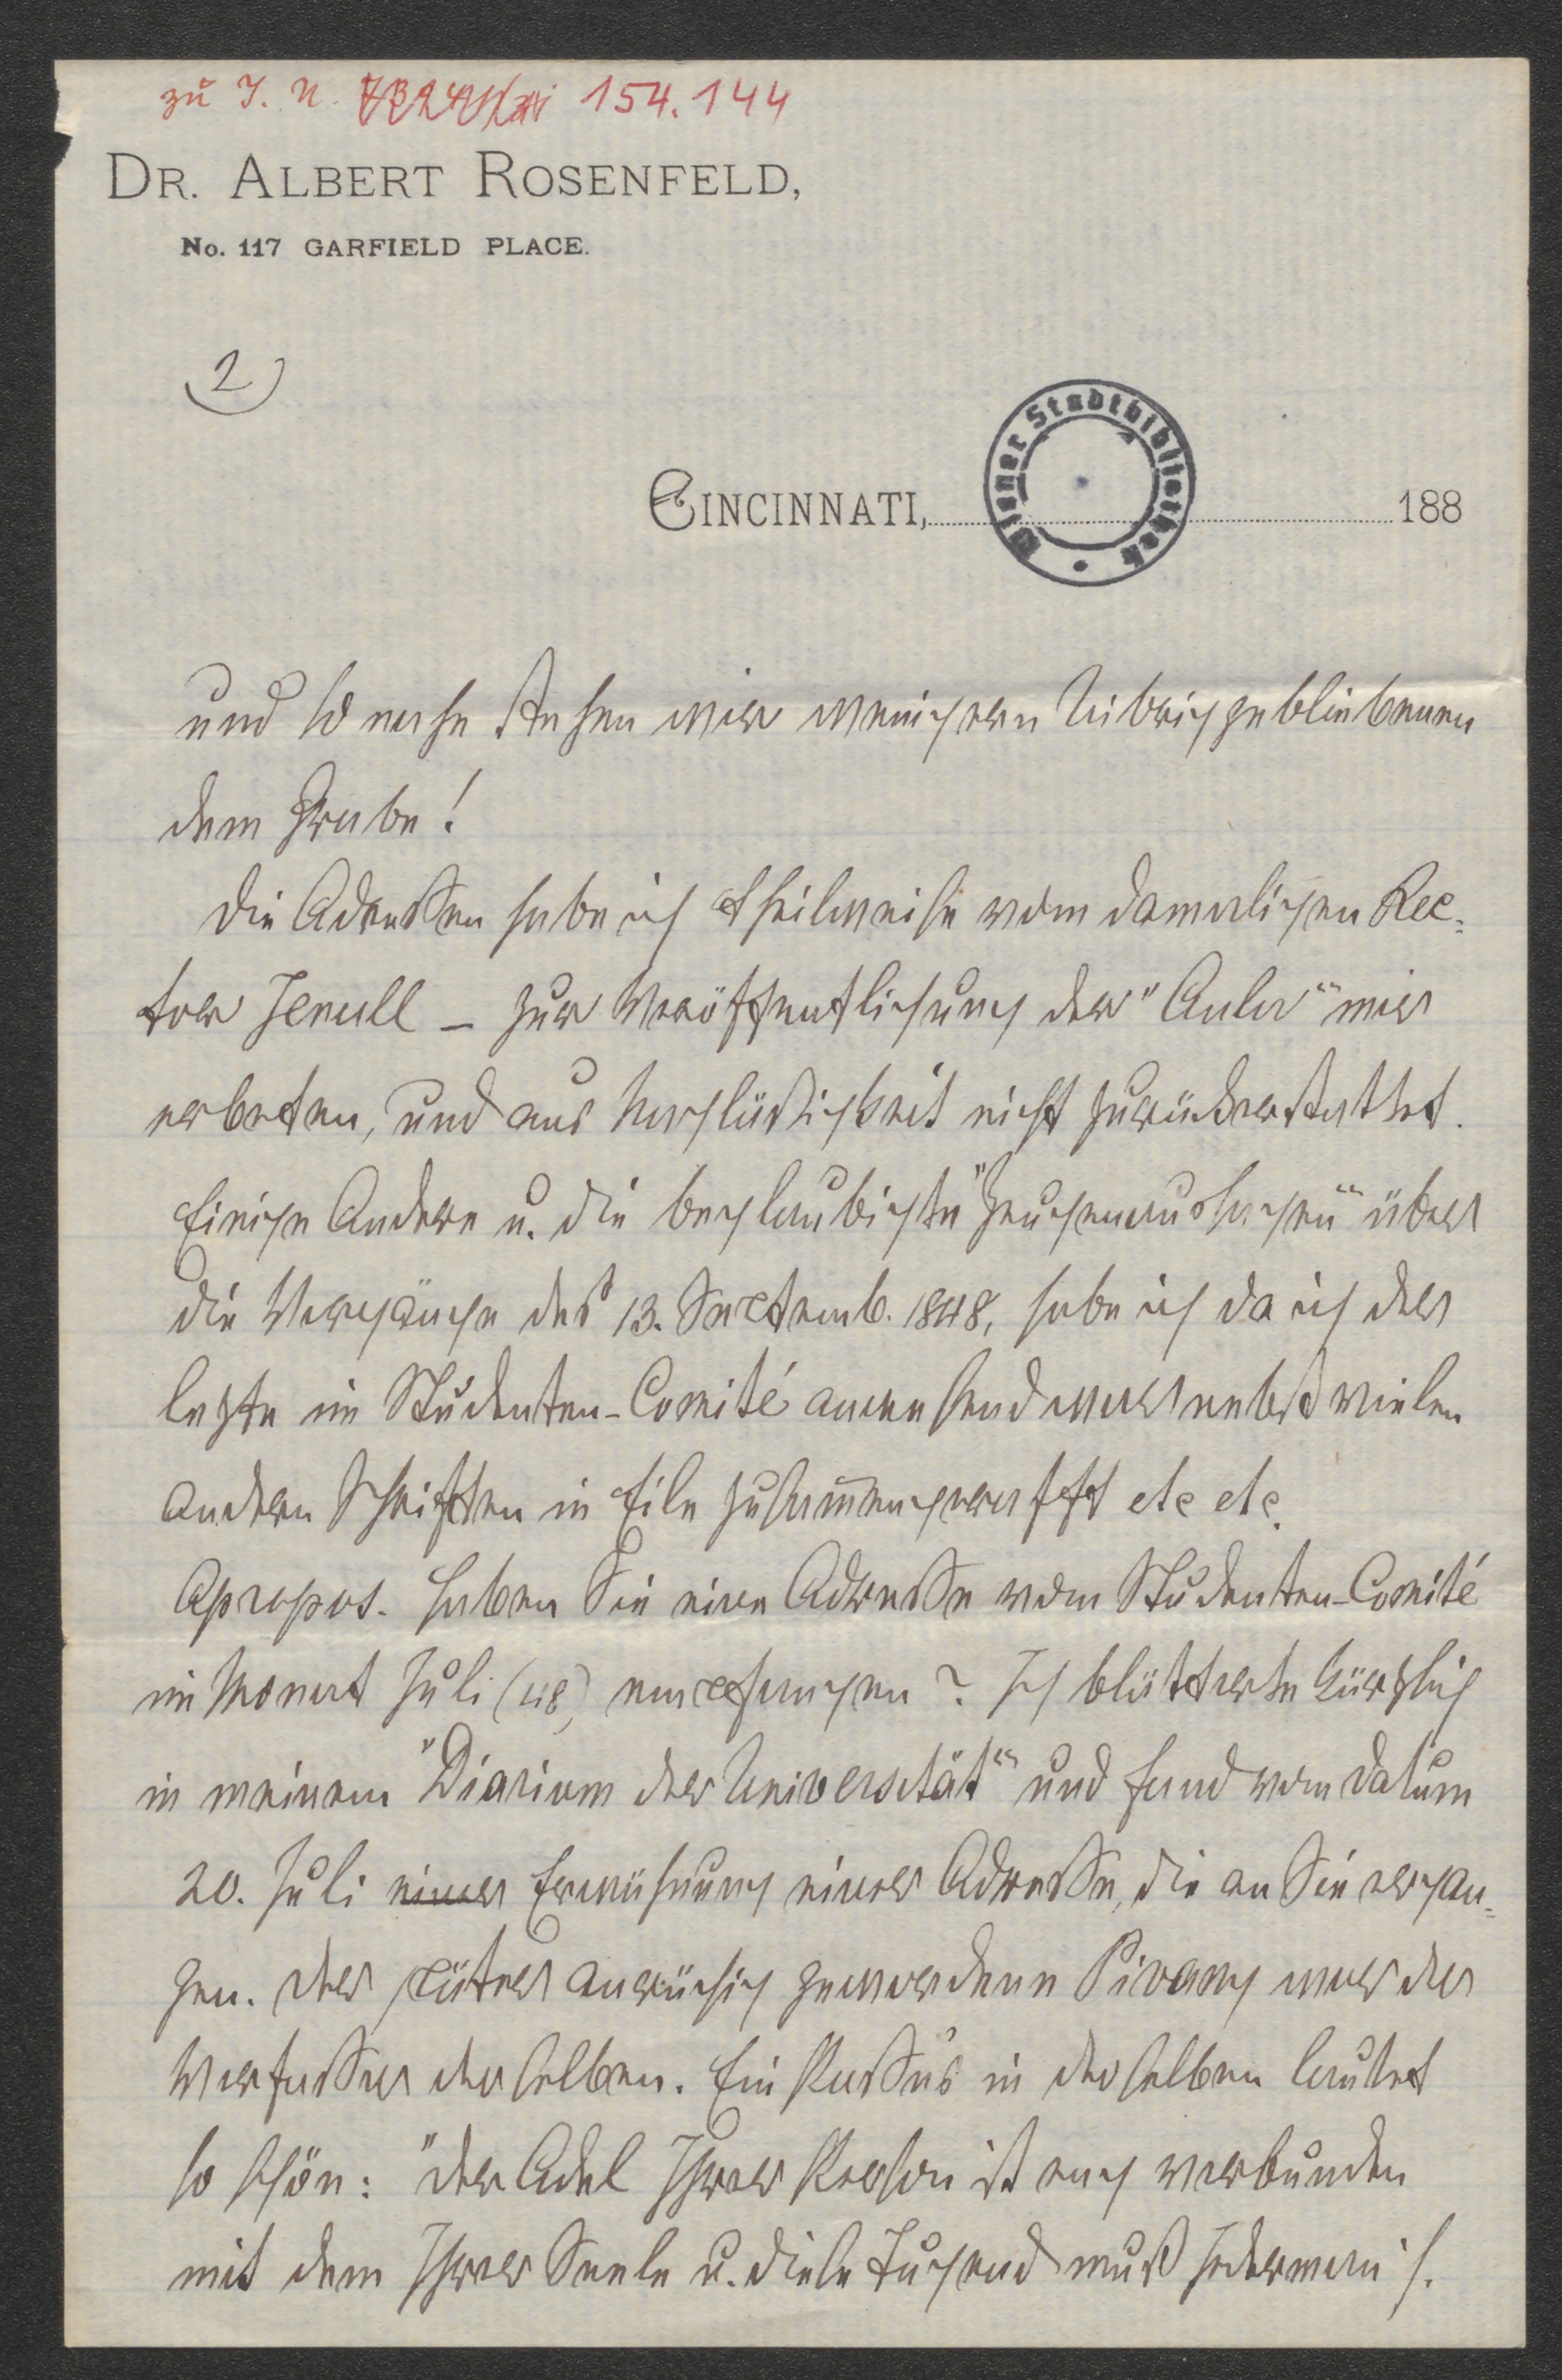 zu I. N. 154.144
DR. ALBERT ROSENFELD,
No. 117 GARFIELD PLACE.
2)
Wiener Stadtbibliothek
CINCINNATI, 188
und so nahe stehen wir wenigern Übriggebliebenen
dem Grabe!
Die Adressen habe ich theilweise vom damaligen Rec-
tor Jenull – zur Veröffentlichung der "Aula" mir
erbeten, und aus Nachläßigkeit nicht zurückerstattet.
Einige Andere u. die beglaubigte "Zeugenaussagen" über
die Vorgänge des 13. Septemb. 1848, habe ich da ich der
letzte im Studenten-Comité anwesend war nebst vielen
andern Schriften in Eile zusammengerafft etc etc.
Apropos. Haben Sie eine Adresse vom Studenten-Comité
im Monat Juli (48) empfangen? Ich blätterte kürzlich
in meinem "Diarium der Universität" und fand vom Datum
20. Juli einer Erwähnung einer Adresse, die an Sie ergan-
gen. Der später anrüchig gewordene Pivany war der
Verfasser derselben. Ein Passus in derselben lautet
so schön: "Der Adel Ihrer Person ist eng verbunden
mit dem Ihrer Seele u. diese Tugend muß Jederman